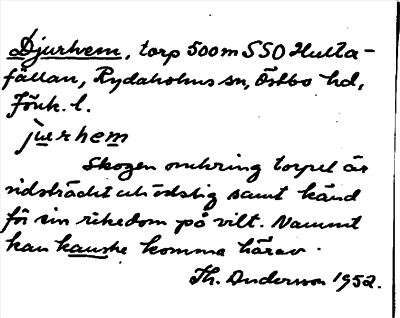 Djurhem, torp 500m SSO Hulta-
fällan, Rydaholms sn, Östbo hd,
Jönk. l.
jurhem
Skogen omkring torpet är
vidsträckt och ödslig samt känd
för sin rikedom på vilt. Namnet
kan kanske komma härav.
Th. Anderson 1952.